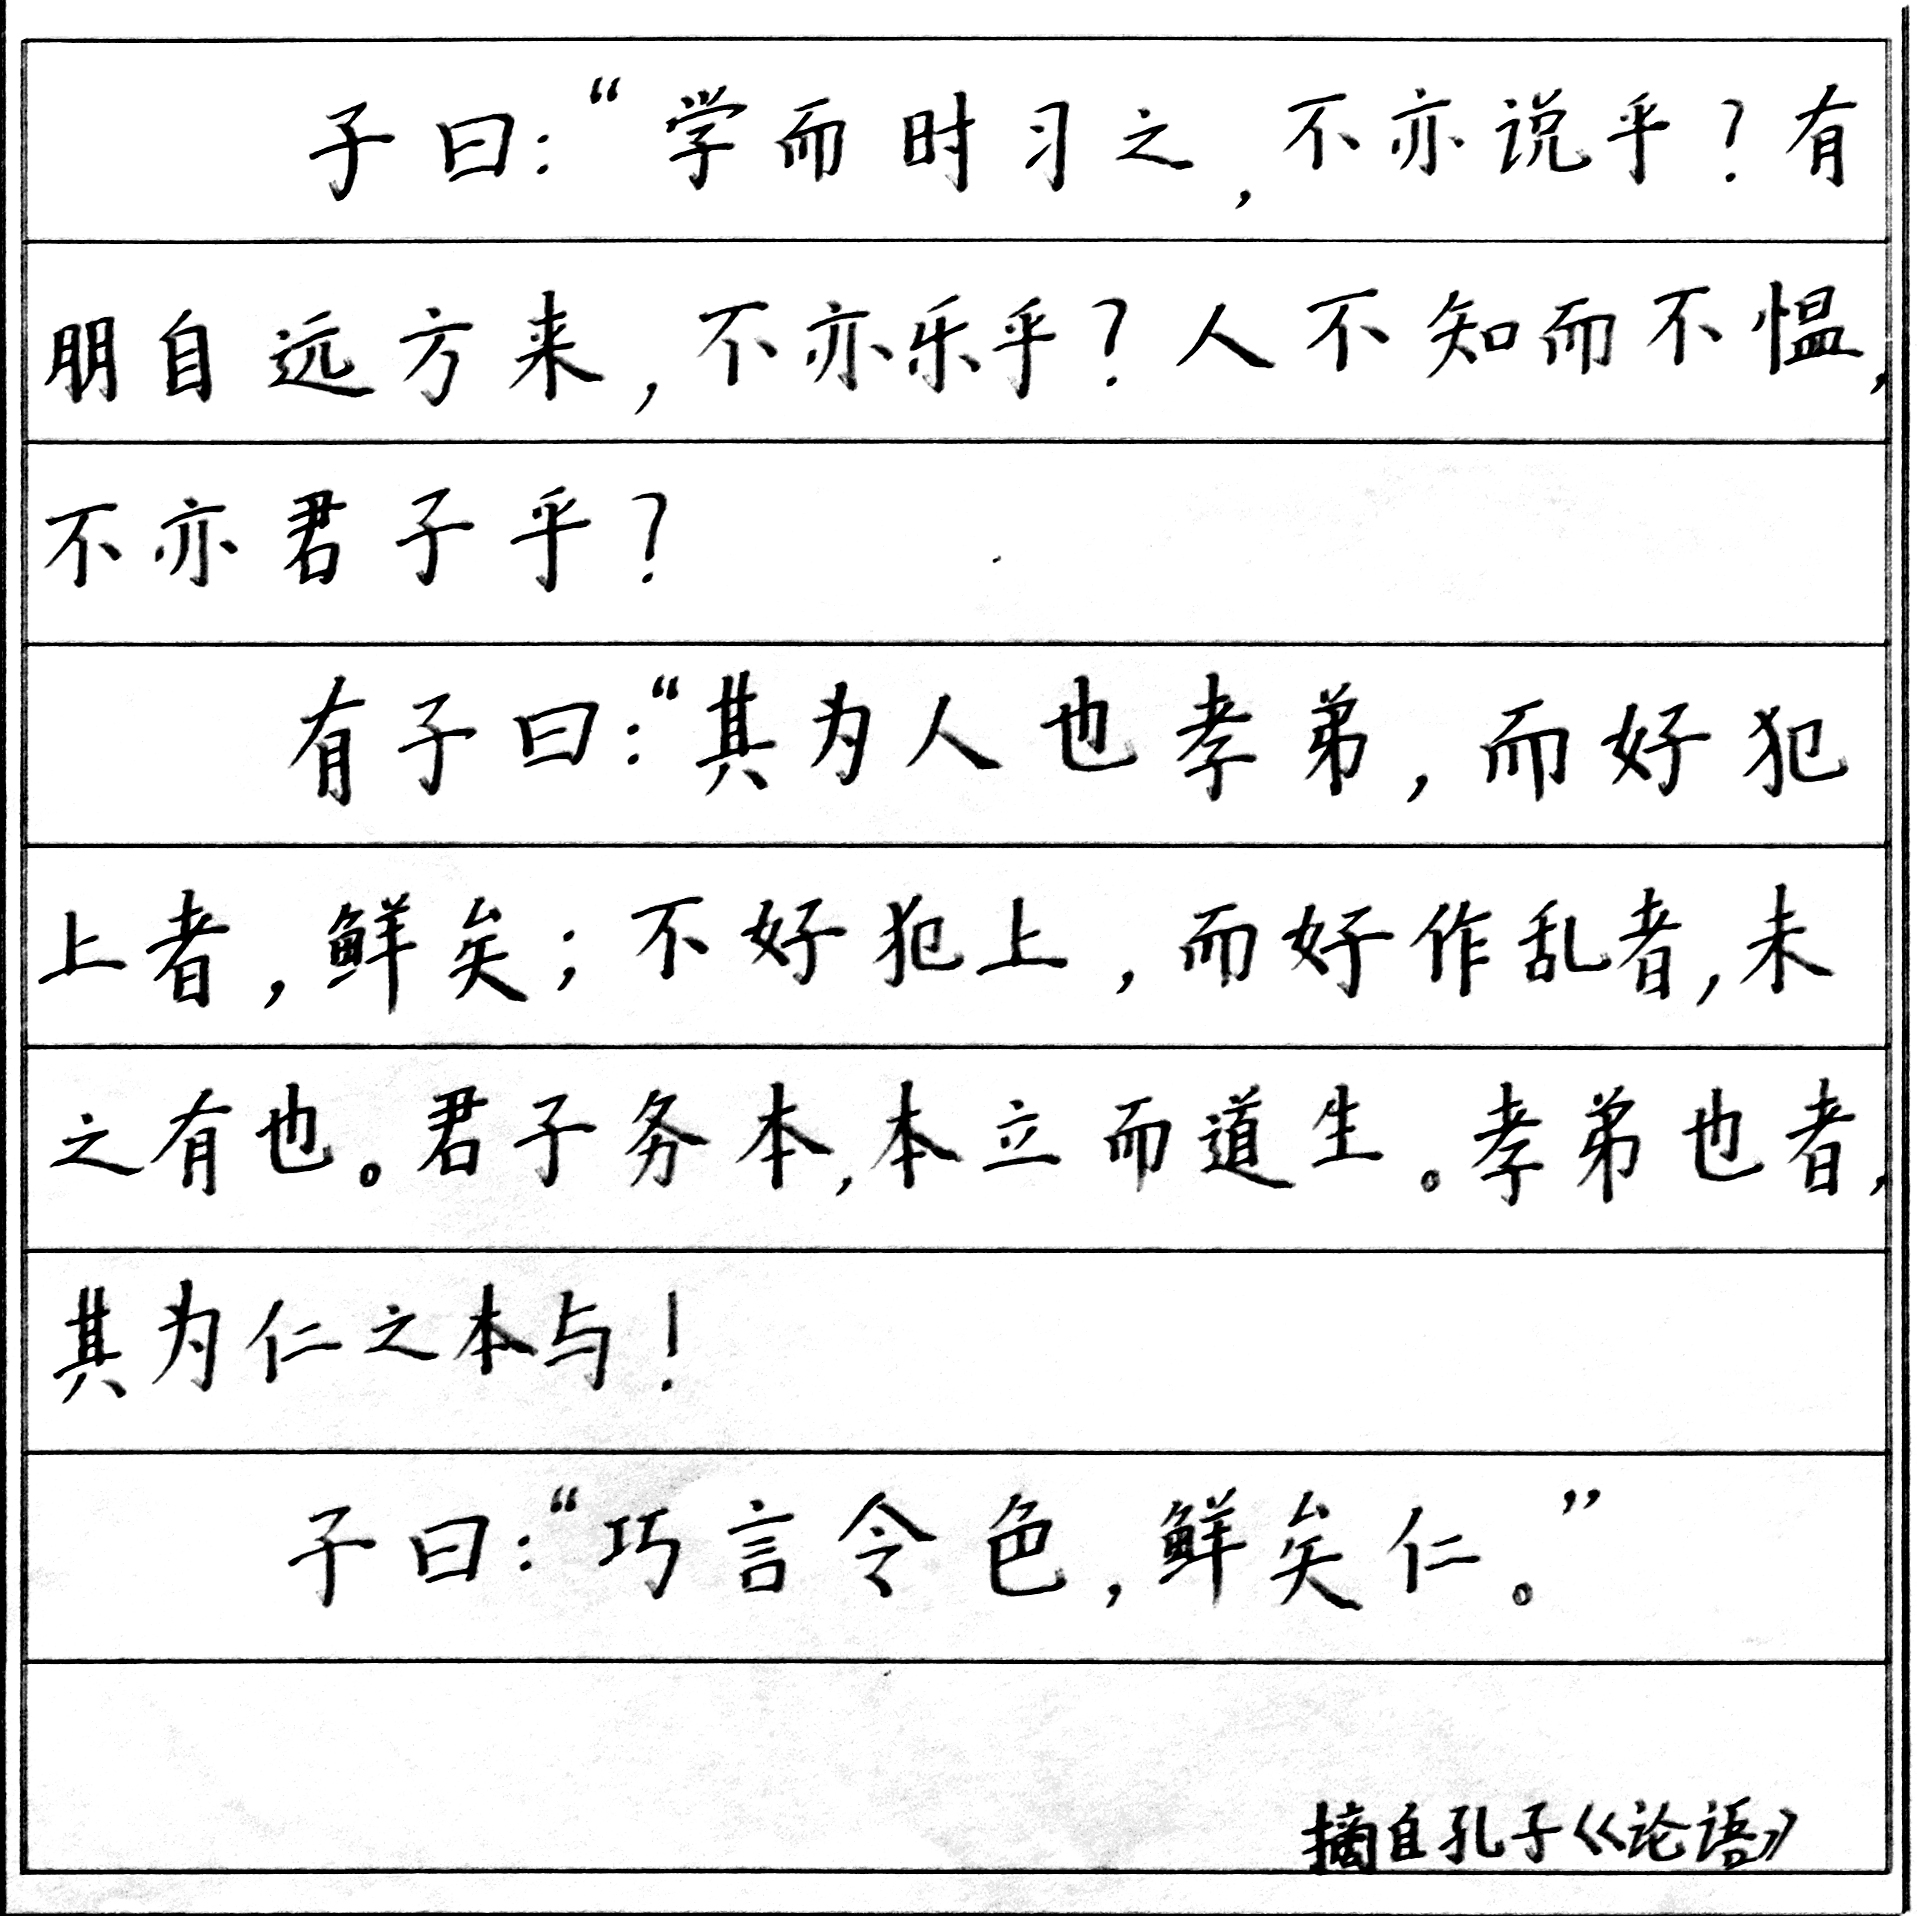 子曰：“学而时习之，不亦说乎？有
朋自远方来，不亦乐乎？人不知而不愠，
不亦君子乎？
有子曰：“其为人也孝弟，而好犯
上者，鲜矣；不好犯上，而好作乱者，未
之有也。君子务本，本立而道生。孝弟也者，
其为仁之本与！
子曰：“巧言令色，鲜矣仁。”
摘自孔子《论语》